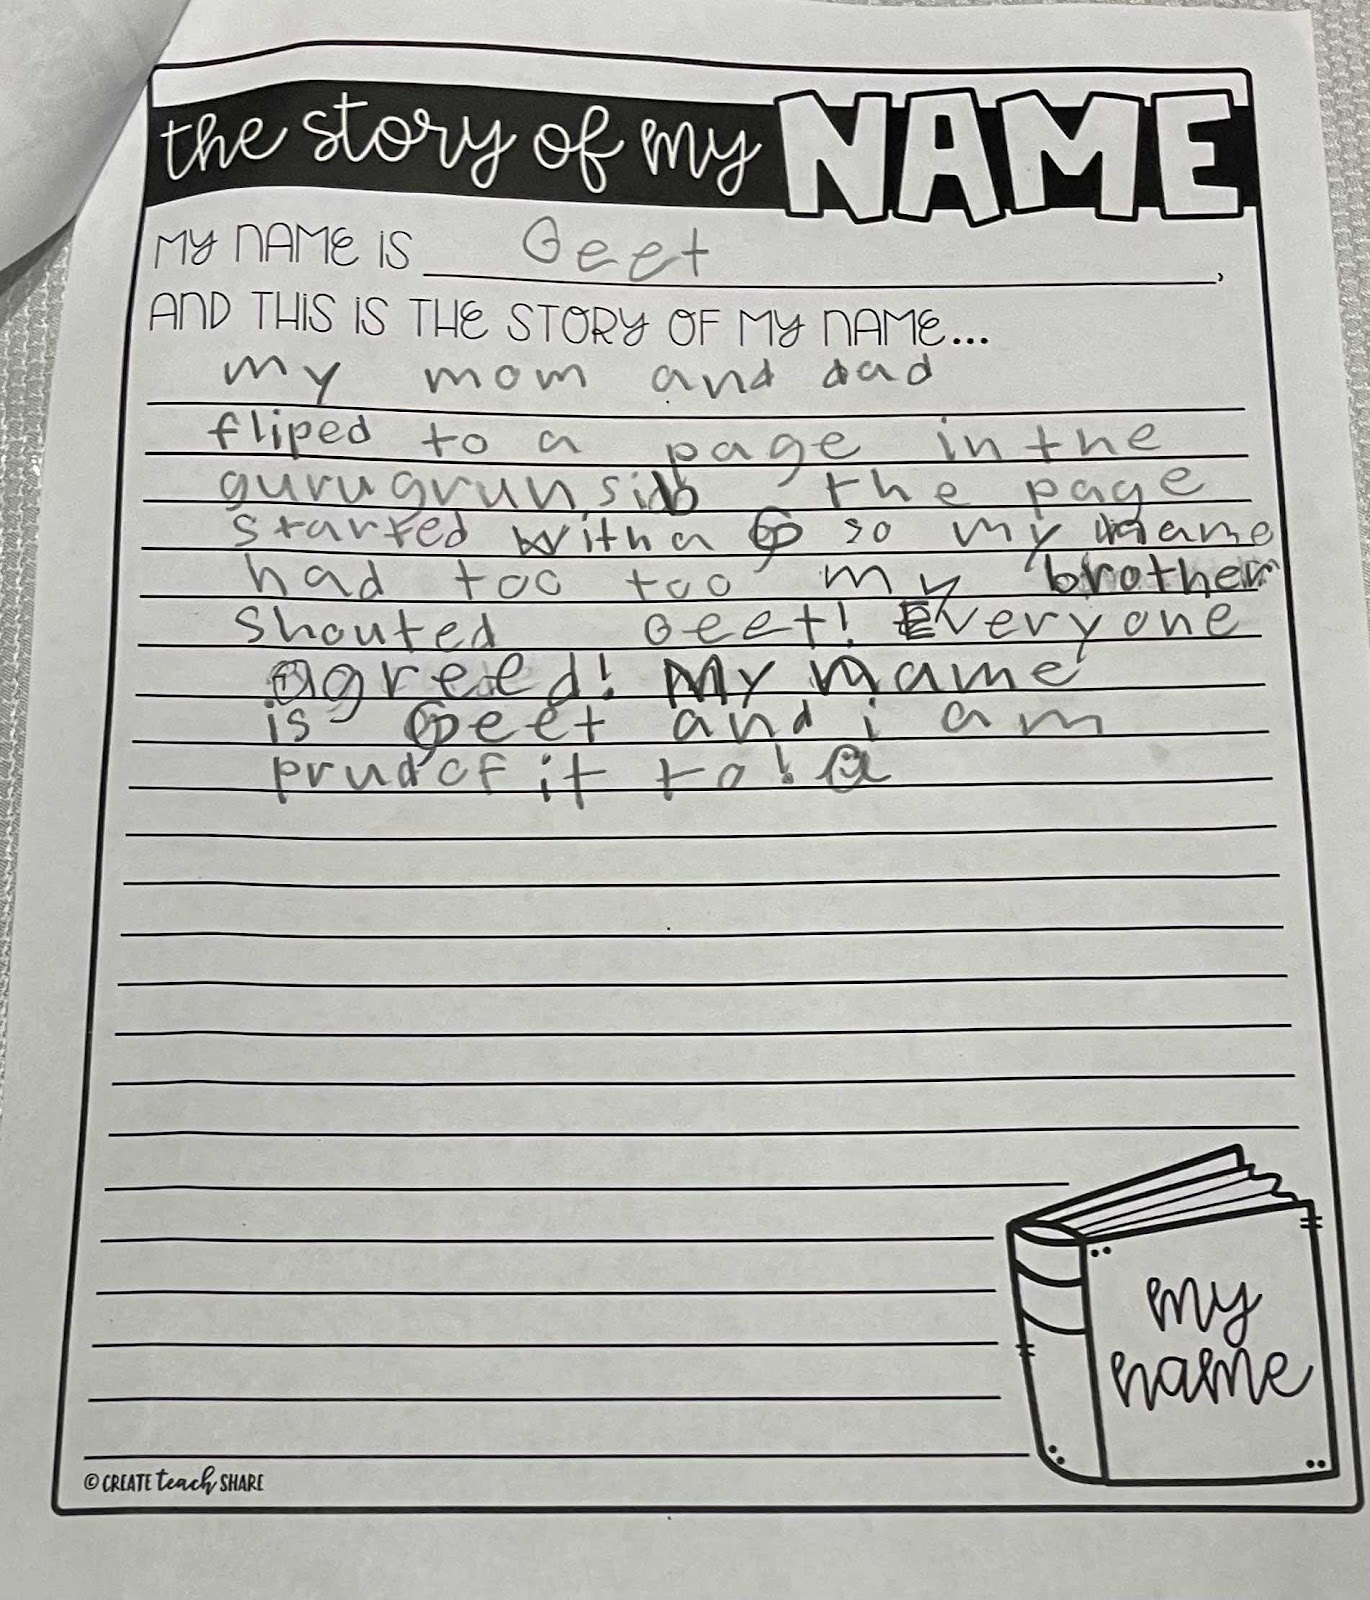 the story of my NAME
MY NAME IS Geet,
AND THIS IS THE STORY OF MY NAME...
my mom and dad
fliped to a page in the
gurugrunsib the page
started with a G so my name
had too too my brother
shouted Geet! Everyone
agreed! My name
is Geet and i am
prud of it to!
my
name
© CREATE teach SHARE